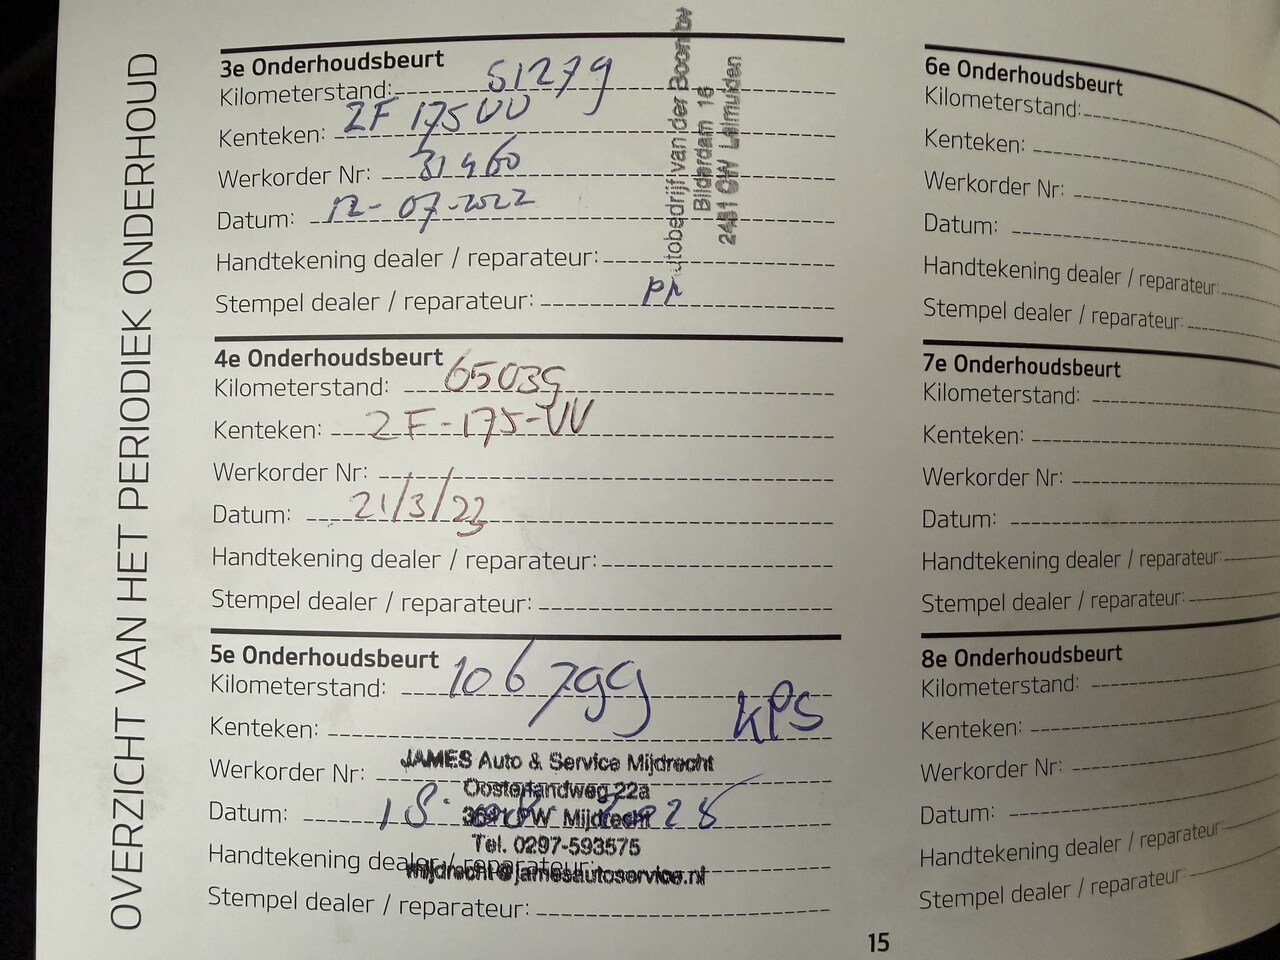 OVERZICHT VAN HET PERIODIEK ONDERHOUD
3e Onderhoudsbeurt
Kilometerstand: 51279
Kenteken: ZF 175 VV
Werkorder Nr: 31460
Datum: 12-07-2022
Handtekening dealer / reparateur:
Stempel dealer / reparateur:
utobedrijf van der Boon bv
Bilderdam 16
2451 CW Leimuiden
4e Onderhoudsbeurt
Kilometerstand: 65039
Kenteken: ZF-175-VV
Werkorder Nr:
Datum: 21/3/23
Handtekening dealer / reparateur:
Stempel dealer / reparateur:
5e Onderhoudsbeurt
Kilometerstand: 106799
KPS
Kenteken:
JAMES Auto & Service Mijdrecht
Werkorder Nr:
Oosterlandweg 22a
Datum: 18
Mijdrecht
Tel. 0297-593575
Handtekening dealer / reparateur:
mijdrecht@jamesautoservice.nl
Stempel dealer / reparateur:
6e Onderhoudsbeurt
Kilometerstand:
Kenteken:
Werkorder Nr:
Datum:
Handtekening dealer / reparateur:
Stempel dealer / reparateur:
7e Onderhoudsbeurt
Kilometerstand:
Kenteken:
Werkorder Nr:
Datum:
Handtekening dealer / reparateur:
Stempel dealer / reparateur:
8e Onderhoudsbeurt
Kilometerstand:
Kenteken:
Werkorder Nr:
Datum:
Handtekening dealer / reparateur:
Stempel dealer / reparateur:
15